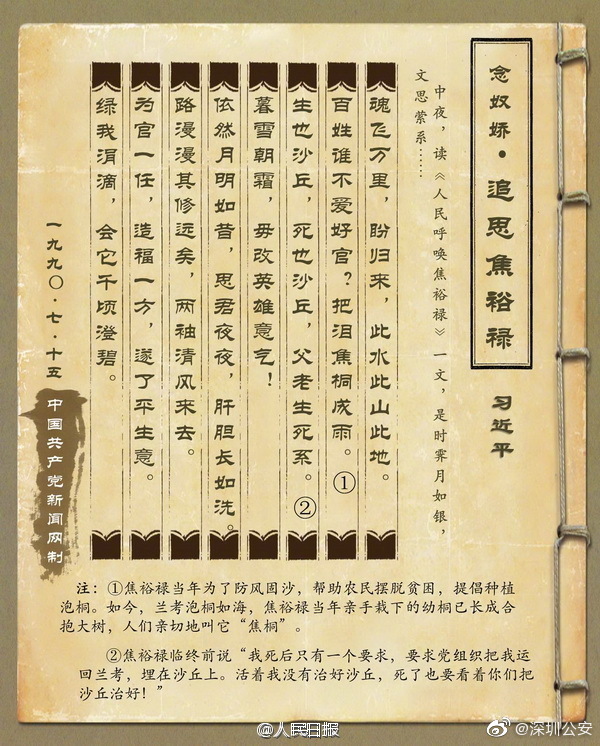 念奴娇·追思焦裕禄
习近平
中夜，读《人民呼唤焦裕禄》一文，是时霁月如银，
文思萦系……
魂飞万里，盼归来，此水此山此地。
百姓谁不爱好官？把泪焦桐成雨。①
生也沙丘，死也沙丘，父老生死系。②
暮雪朝霜，毋改英雄意气！
依然月明如昔，思君夜夜，肝胆长如洗。
路漫漫其修远矣，两袖清风来去。
为官一任，造福一方，遂了平生意。
绿我涓滴，会它千顷澄碧。
一九九〇·七·十五
中国共产党新闻网制
注：①焦裕禄当年为了防风固沙，帮助农民摆脱贫困，提倡种植
泡桐。如今，兰考泡桐如海，焦裕禄当年亲手栽下的幼桐已长成合
抱大树，人们亲切地叫它“焦桐”。
②焦裕禄临终前说“我死后只有一个要求，要求党组织把我运
回兰考，埋在沙丘上。活着我没有治好沙丘，死了也要看着你们把
沙丘治好！”
@人民日报
@深圳公安